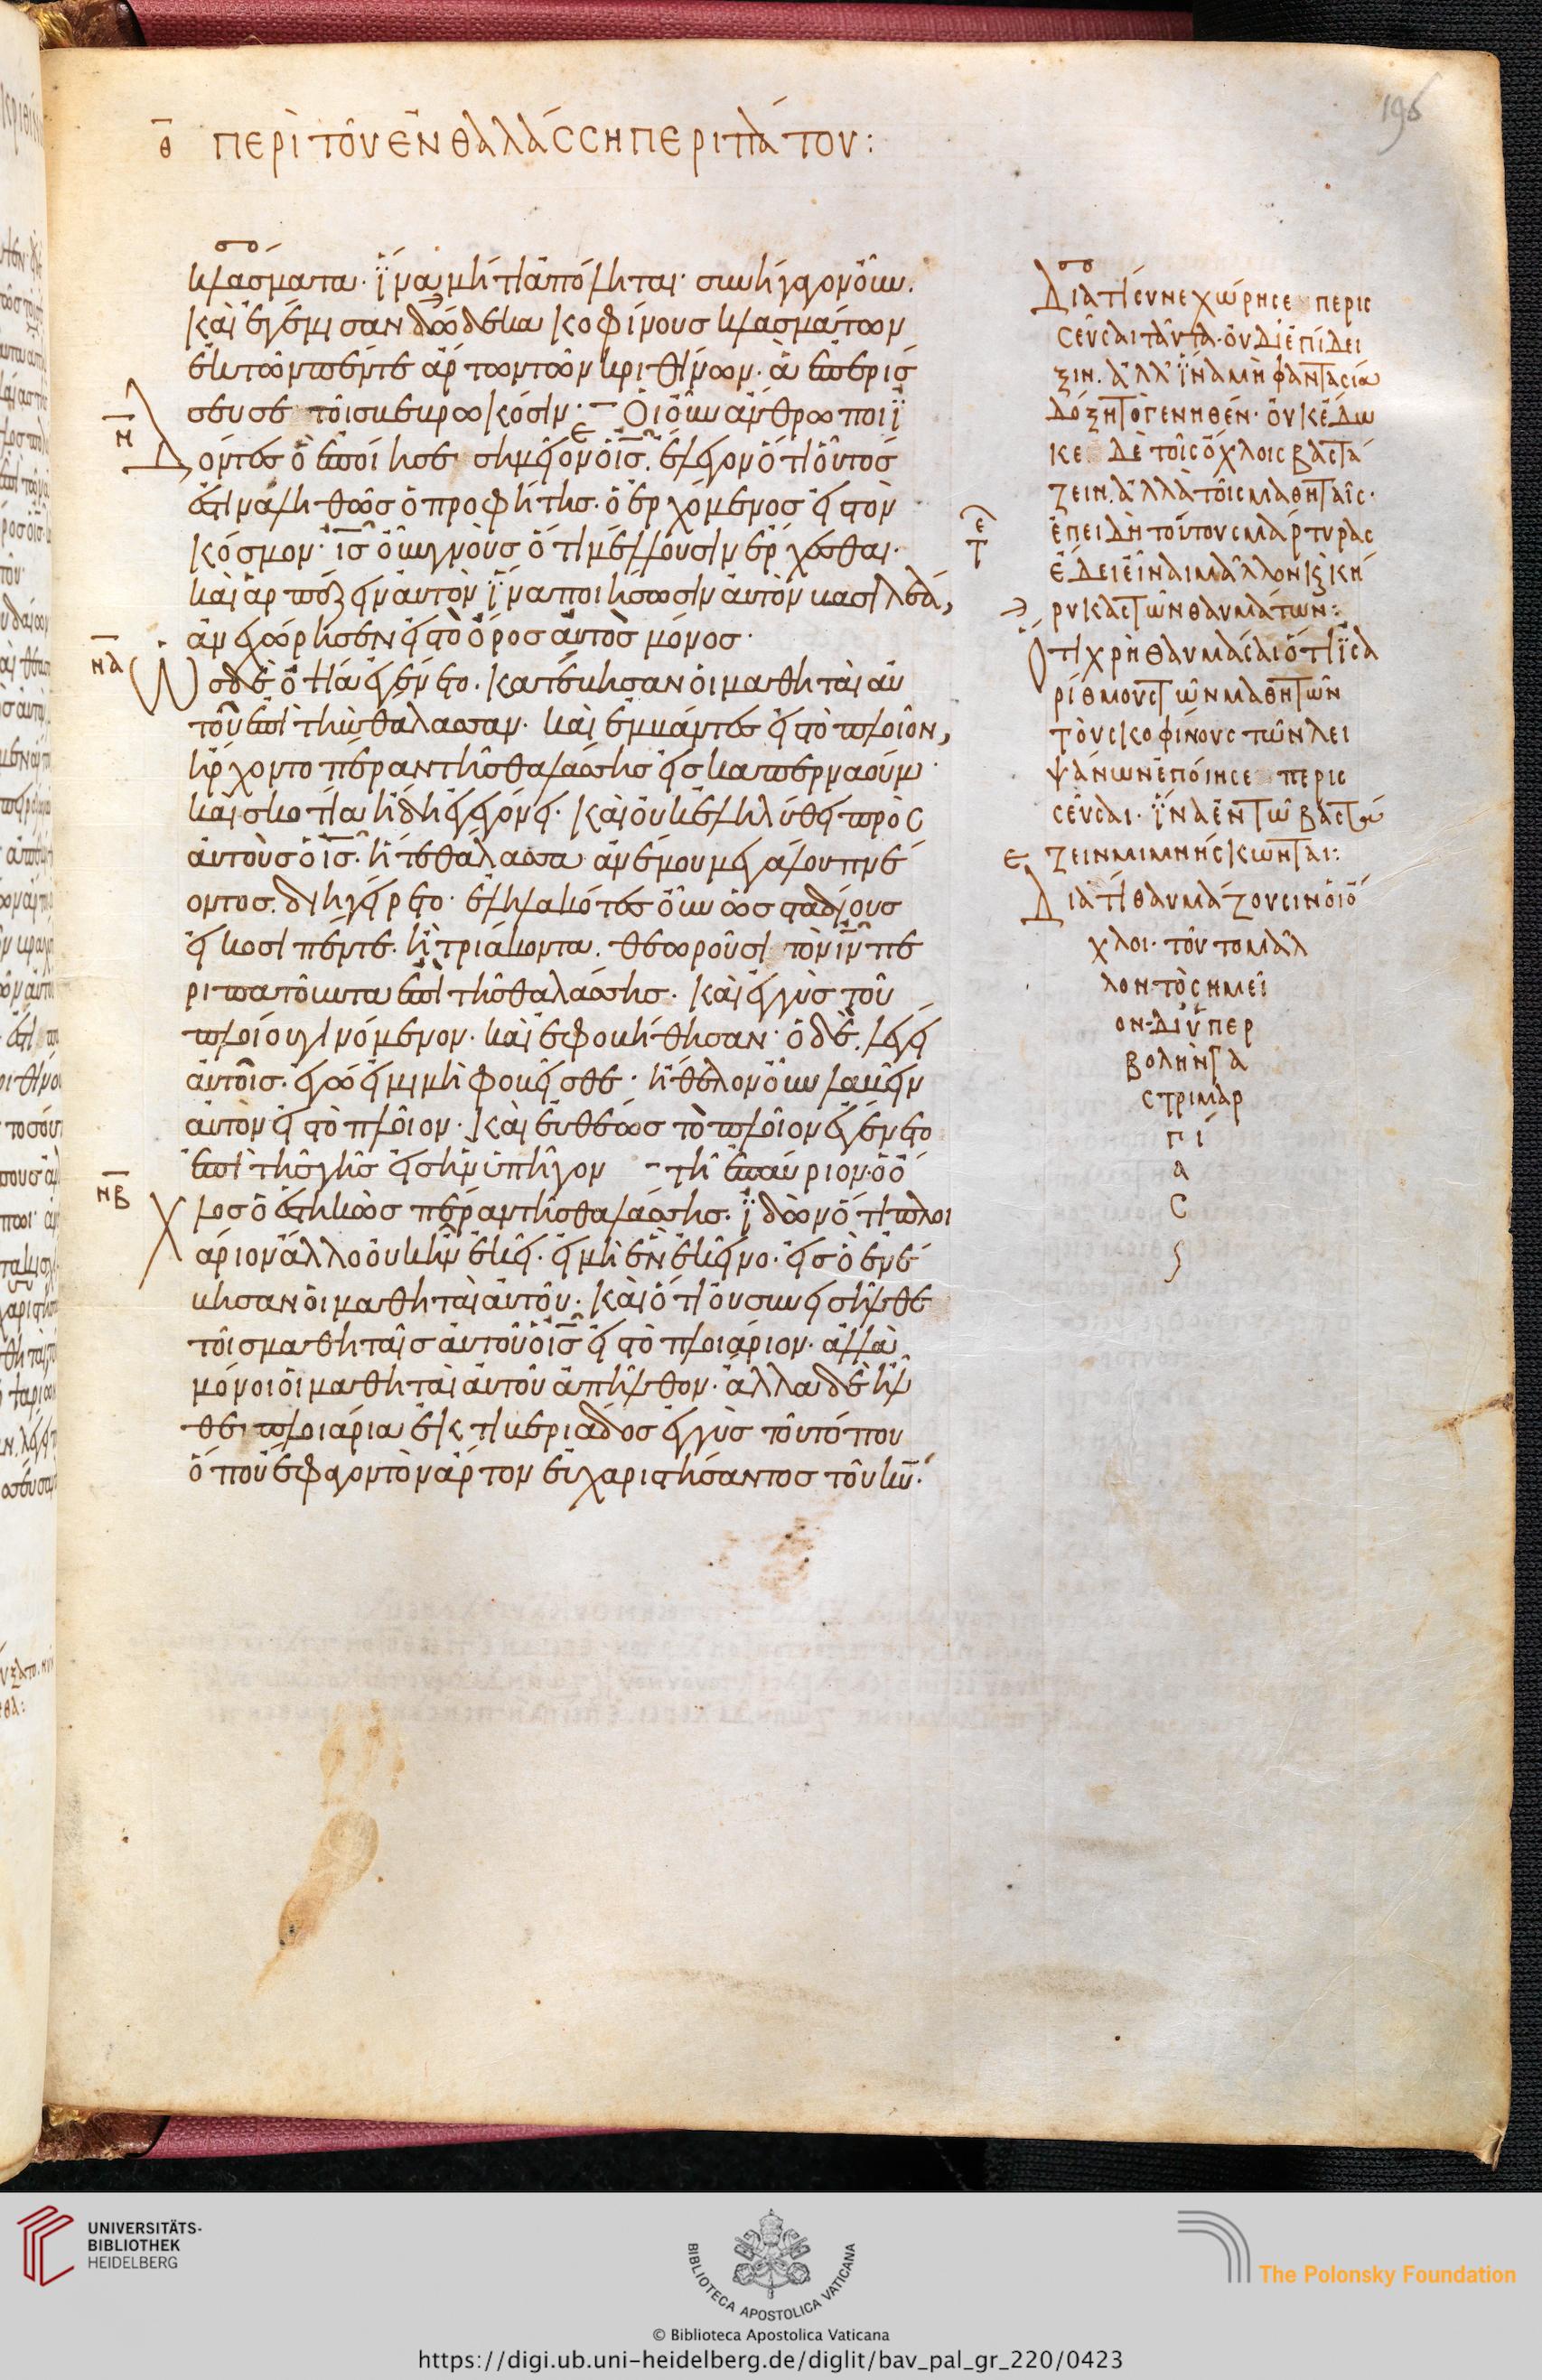 196
θ ΠΕΡῚ ΤΟῦ ΕΝ ΘΑΛΆΣΣΗ ΠΕΡΙΠΆΤΟΥ:
κλάσματα· ἵνα μή τι ἀπόληται· συνήγαγον οὖν.
καὶ ἐγέμισαν δώδεκα κοφίνους κλασμάτων
ἐκ τῶν πέντε ἄρτων τῶν κριθίνων. ἃ ἐπερίσ
σευσε τοῖς βεβρωκόσιν· Οἱ οὖν ἄνθρωποι ἰ
η
δόντες ὃ ἐποίησε σημεῖον ὁ ις. ἔλεγον ὅτι οὗτός
ἐστιν ἀληθῶς ὁ προφήτης. ὁ ἐρχόμενος εἰς τὸν
κόσμον· ις οὖν γνοὺς ὅτι μέλλουσιν ἔρχεσθαι.
καὶ ἁρπάζειν αὐτὸν ἵνα ποιήσωσιν αὐτὸν βασιλέα,
ἀνεχώρησεν εἰς τὸ ὄρος αὐτὸς μόνος·
ηα
Ὡς δὲ ὀψία ἐγένετο. κατέβησαν οἱ μαθηταὶ αὐ
τοῦ ἐπὶ τὴν θάλασσαν. καὶ ἐμβάντες εἰς τὸ πλοῖον,
ἤρχοντο πέραν τῆς θαλάσσης εἰς καπερναούμ·
καὶ σκοτία ἤδη ἐγεγόνει. καὶ οὐκ ἐληλύθει πρὸς
αὐτοὺς ὁ ις. ἥ τε θάλασσα ἀνέμου μεγάλου πνέ
οντος. διηγείρετο· ἐληλακότες οὖν ὡς σταδίους
εἴκοσι πέντε. ἢ τριάκοντα. θεωροῦσι τὸν ιν πε
ριπατοῦντα ἐπὶ τῆς θαλάσσης. καὶ ἐγγὺς τοῦ
πλοίου γινόμενον. καὶ ἐφοβήθησαν· ὁ δὲ. λέγει
αὐτοῖς. ἐγώ εἰμι μὴ φοβεῖσθε· ἤθελον οὖν λαβεῖν
αὐτὸν εἰς τὸ πλοῖον. καὶ εὐθέως τὸ πλοῖον ἐγένετο
ἐπὶ τῆς γῆς εἰς ἣν ὑπῆγον τῆ ἐπαύριον. ὁ ὄ
ηβ
χλος ὁ ἑστηκὼς πέραν τῆς θαλάσσης. ἰδὼν ὅτι πλοι
άριον ἄλλο οὐκ ἦν ἐκεῖ. εἰ μὴ ἓν ἐκεῖνο. εἰς ὃ ἐνέ
βησαν οἱ μαθηταὶ αὐτοῦ. καὶ ὅτι οὐ συνεισῆλθε
τοῖς μαθηταῖς αὐτοῦ ὁ ις εἰς τὸ πλοιάριον. ἀλλὰ
μόνοι οἱ μαθηταὶ αὐτοῦ ἀπῆλθον. ἄλλα δὲ ἦλ
θε πλοιάρια ἐκ τιβεριάδος ἐγγὺς τοῦ τόπου
ὅπου ἔφαγον τὸν ἄρτον εὐχαριστήσαντος τοῦ κυ.
Διατί συνεχώρησε περις
σεῦσαι ταῦτα. οὐ δι' ἐπίδει
ξιν. ἀλλ' ἵνα μὴ φαντασία
δόξη τὸ γενηθέν. οὐκ ἔδω
κε δὲ τοῖς ὄχλοις βαστά
ζειν. ἀλλὰ τοῖς μαθηταῖς.
ἐπειδὴ τούτους μάρτυρας
ἔδει εἶναι μᾶλλον κ κή
ρυκας τῶν θαυμάτων:
Ὅτι χρὴ θαυμάσαι ὅτι ἰσα
ρίθμους τῶν μαθητῶν
τοὺς κοφίνους τῶν λει
ψάνων ἐποίησε περις
σεῦσαι. ἵνα ἐν τῶ βαστά
ζειν μιμνήσκωνται:
Διατί θαυμάζουσιν οἱ ὄ
χλοι. τοῦτο μᾶλ
λον τὸ σημεῖ
ον. δι' ὑπερ
βολὴν γα
στριμαρ
γί
α
ς
UNIVERSITÄTS-
BIBLIOTHEK
HEIDELBERG
BIBLIOTECA APOSTOLICA VATICANA
© Biblioteca Apostolica Vaticana
The Polonsky Foundation
https://digi.ub.uni-heidelberg.de/diglit/bav_pal_gr_220/0423